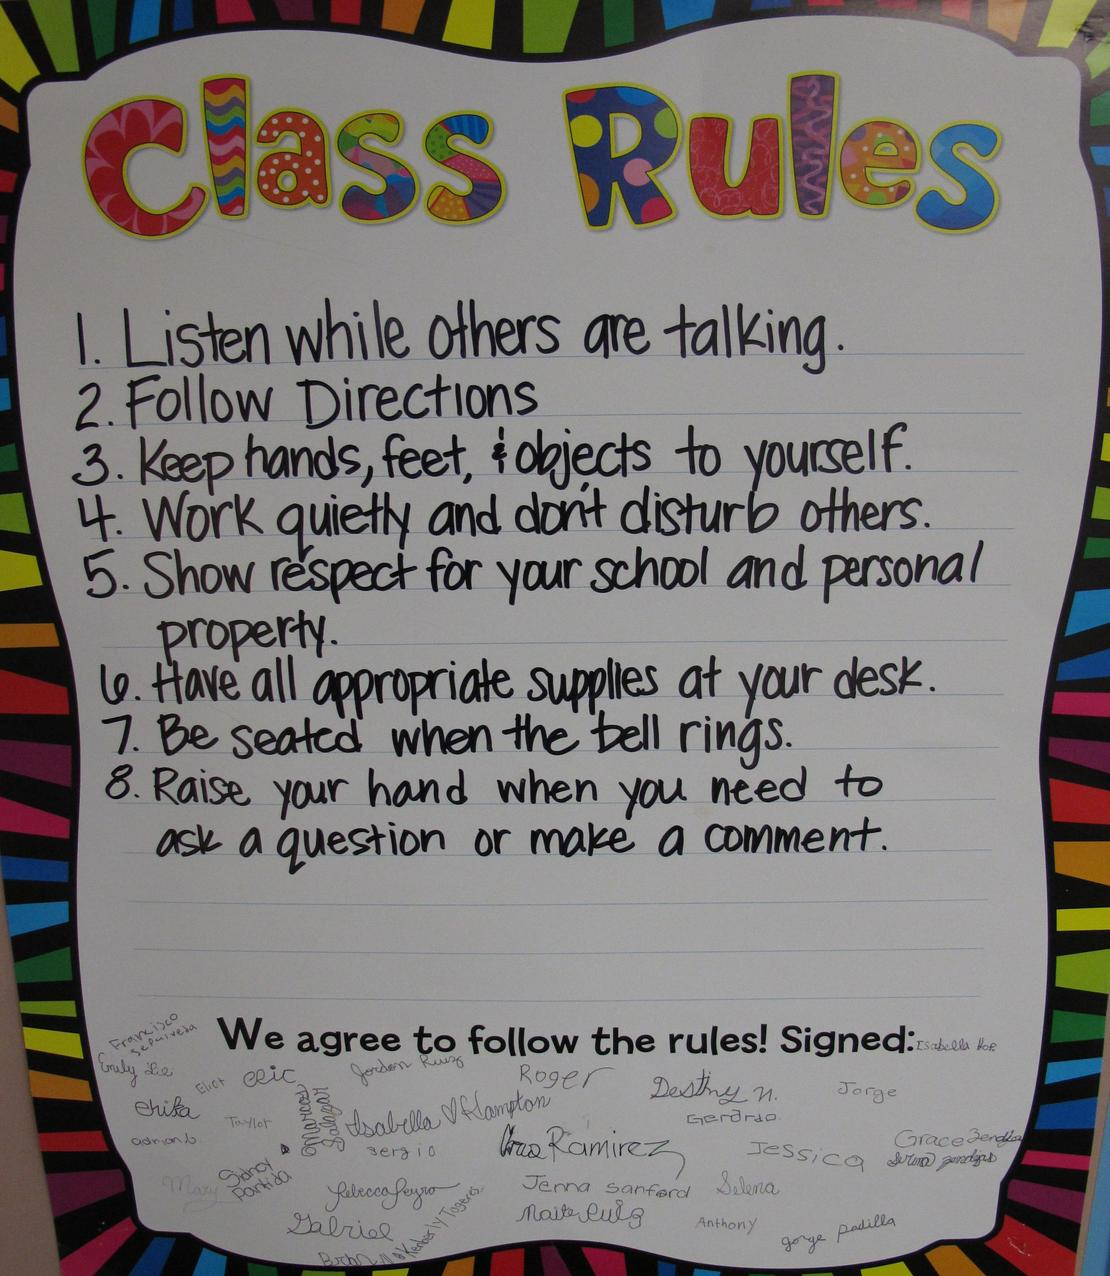 Class Rules
1. Listen while others are talking.
2. Follow Directions
3. Keep hands, feet, & objects to yourself.
4. Work quietly and don't disturb others.
5. Show respect for your school and personal
property.
6. Have all appropriate supplies at your desk.
7. Be seated when the bell rings.
8. Raise your hand when you need to
ask a question or make a comment.
We agree to follow the rules! Signed:
Francisco
Sepulveda
Emily Lee
Eliot
eric
Jordan Ruiz
Roger
Destiny n.
Jorge
erika
Taylor
Salazar
Isabella Hampton
Gerardo
adrian b
sergio
Ramirez
Jessica
Grace
Mary
Sidney
Partida
Jenna Sanford
Selena
Gabriel
Kemberly
Anthony
gorge padilla